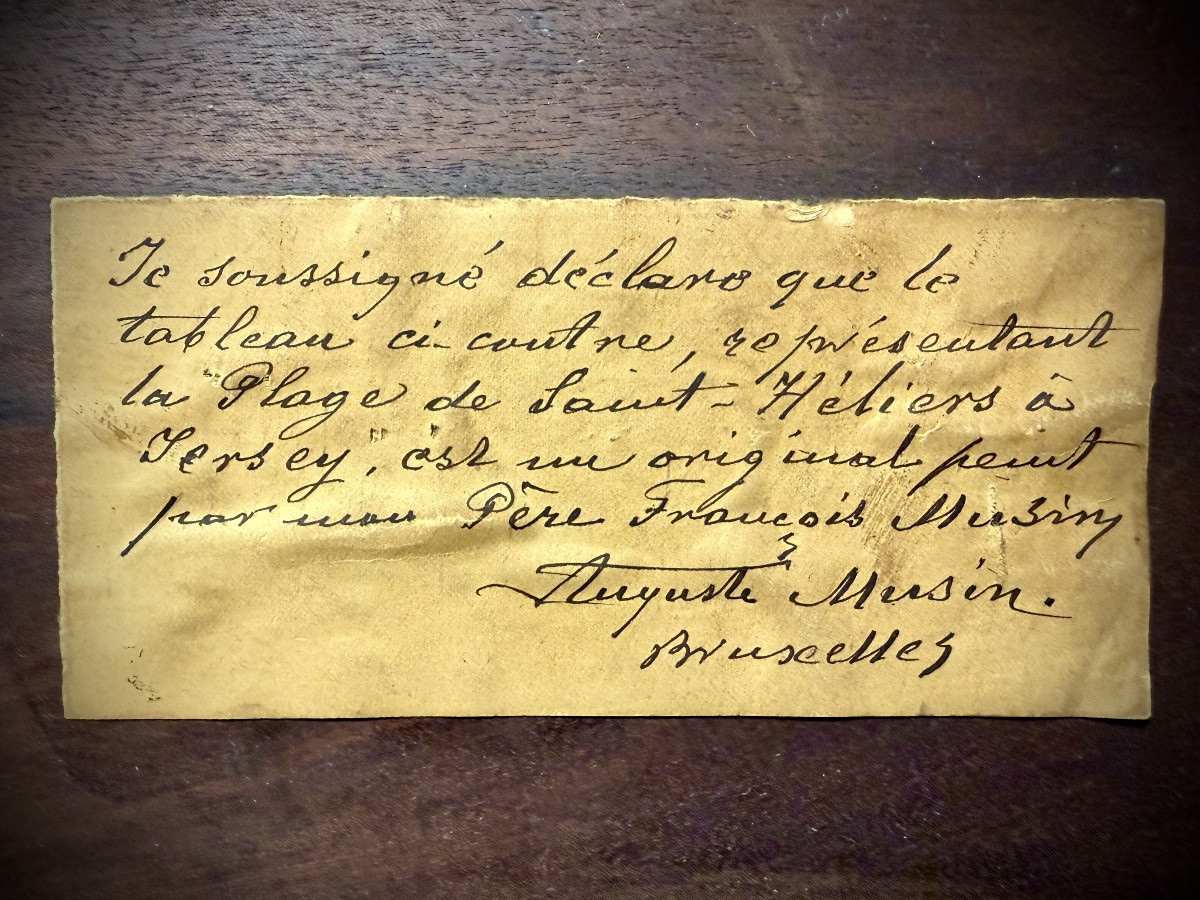 Je soussigné déclare que le
tableau ci-contre, représentant
la Plage de Saint-Héliers à
Jersey, est un original peint
par mon Père François Musin
Auguste Musin.
Bruxelles